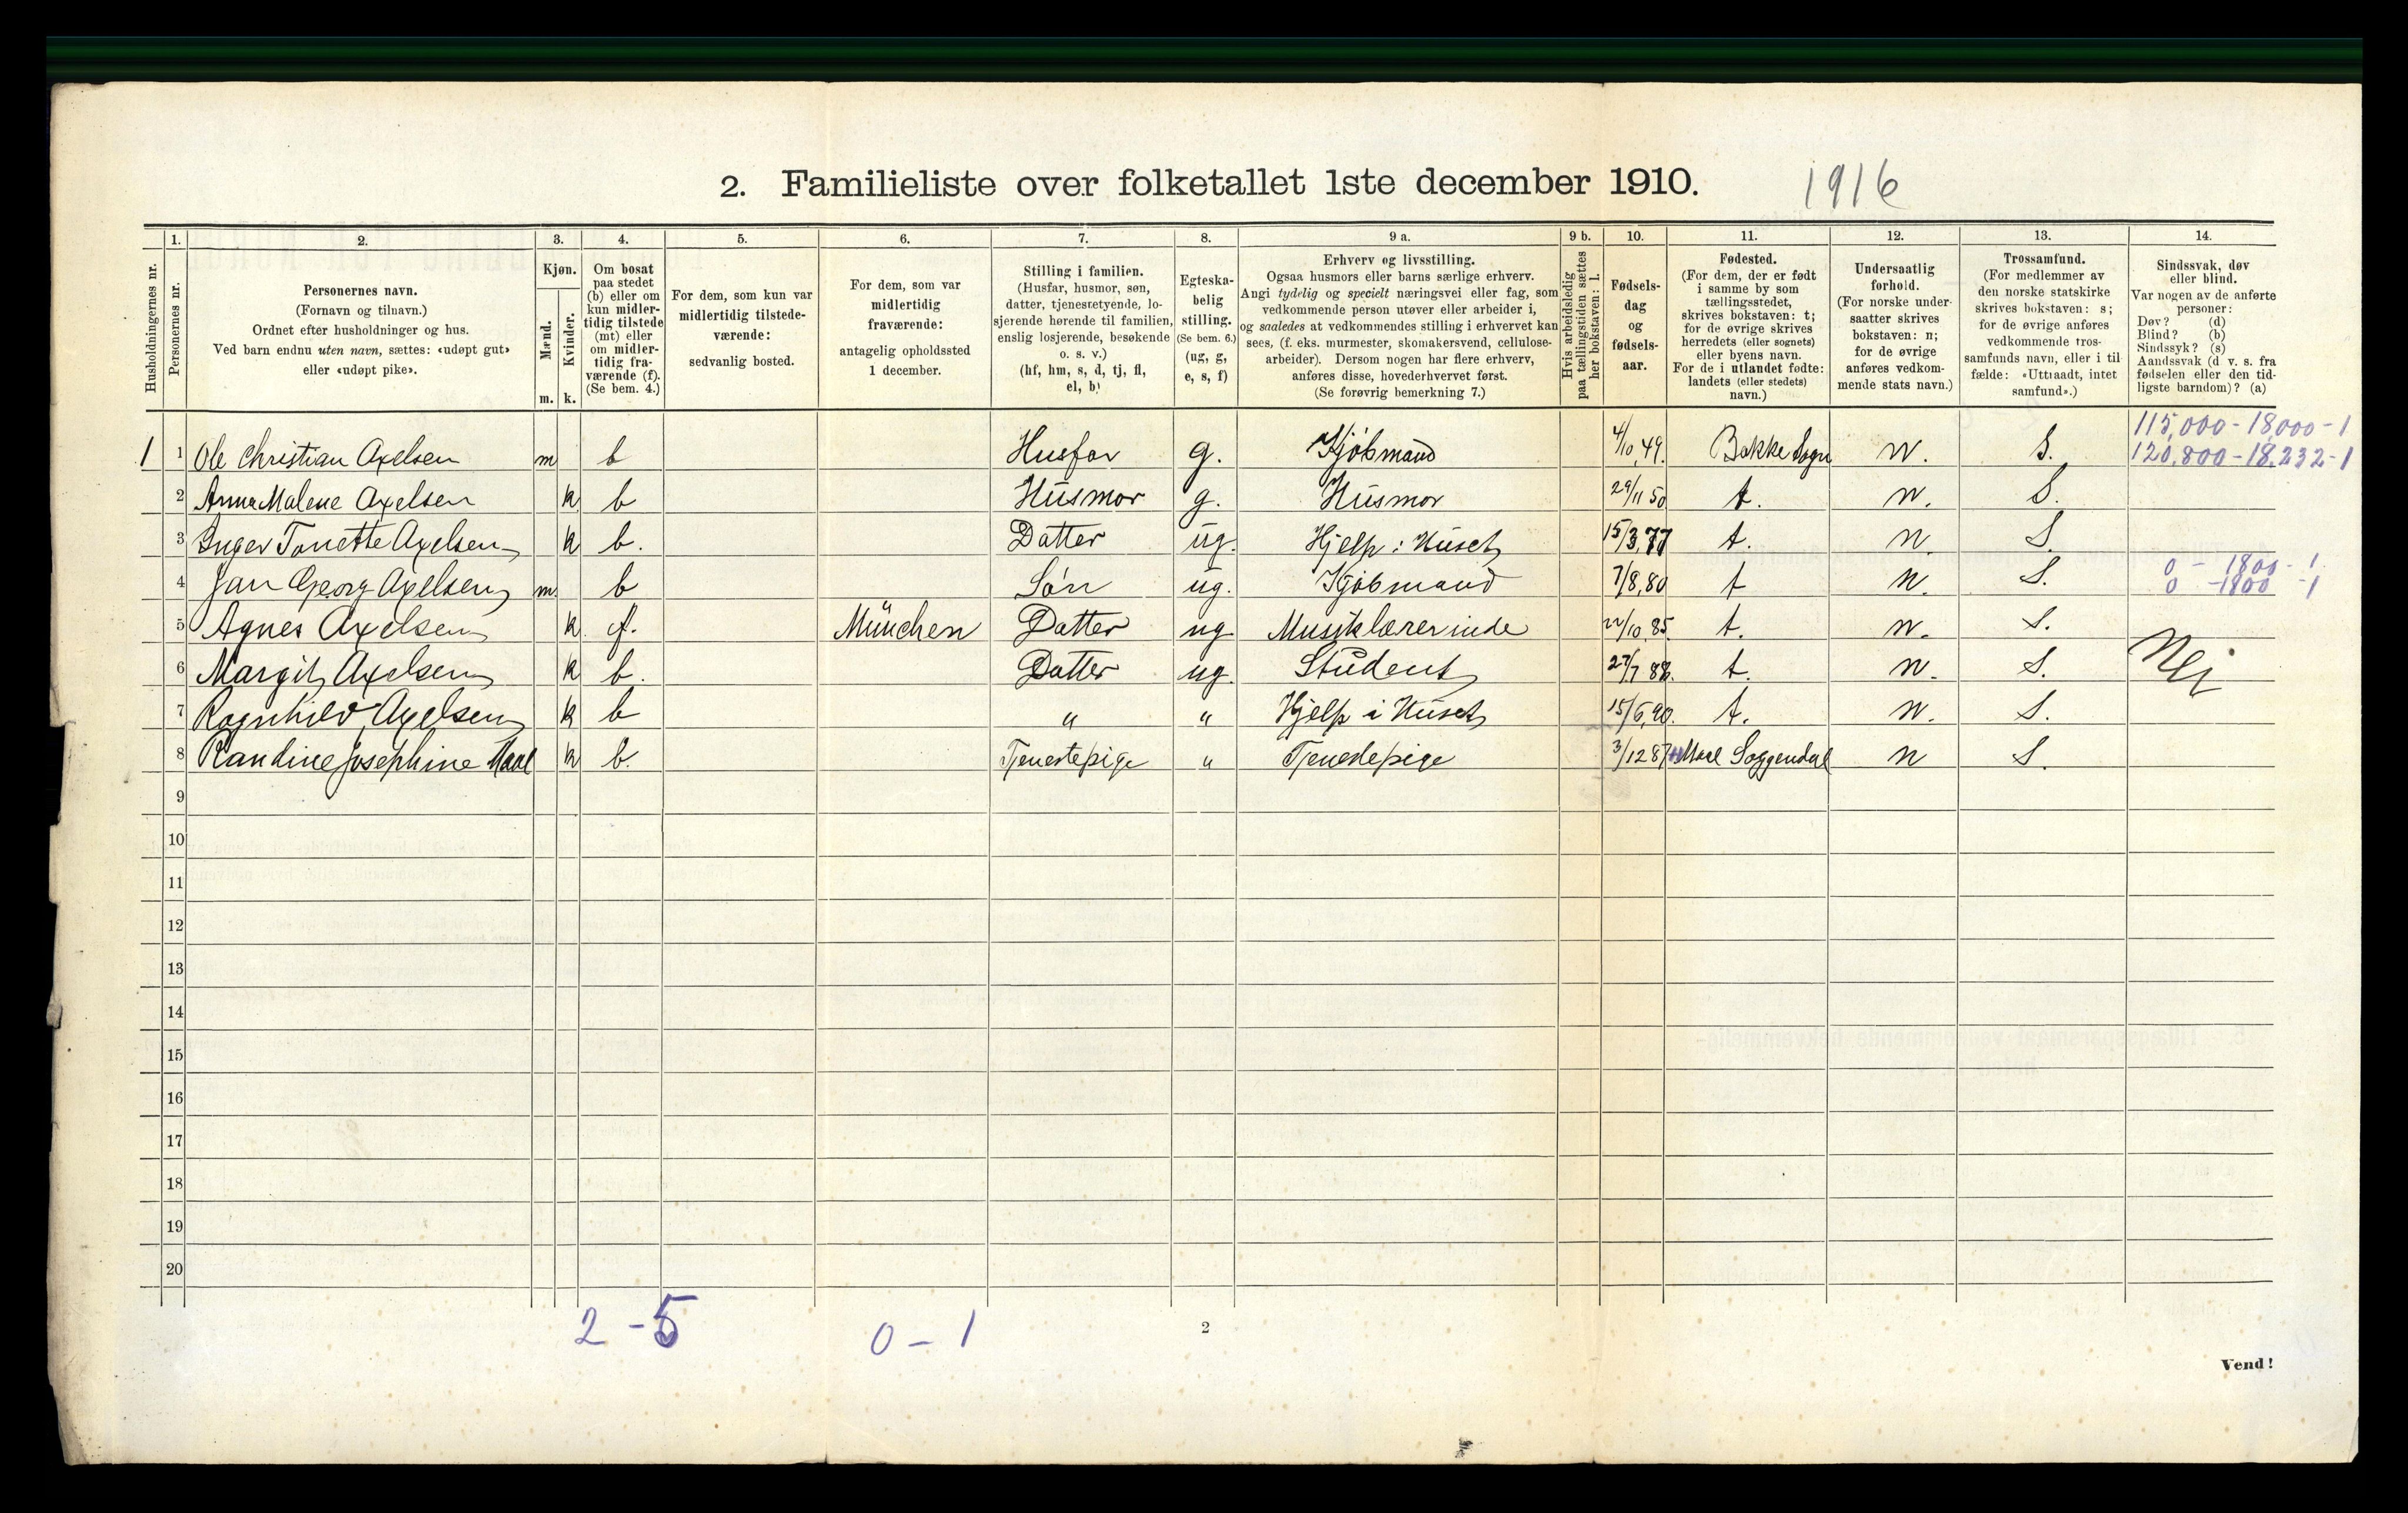 2. Familieliste over folketallet 1ste december 1910. 1916
1. 2. 3. 4. 5. 6. 7. 8. 9 a. 9 b. 10. 11. 12. 13. 14.
Husholdningernes nr.
Personernes nr.
Personernes navn.
(Fornavn og tilnavn.)
Ordnet efter husholdninger og hus.
Ved barn endnu uten navn, sættes: «udøpt gut»
eller «udøpt pike».
Kjøn.
Mænd.
Kvinder.
m. k.
Om bosat
paa stedet
(b) eller om
kun midler-
tidig tilstede
(mt) eller
om midler-
tidig fra-
værende (f).
(Se bem. 4.)
For dem, som kun var
midlertidig tilstede-
værende:
sedvanlig bosted.
For dem, som var
midlertidig
fraværende:
antagelig opholdssted
1 december.
Stilling i familien.
(Husfar, husmor, søn,
datter, tjenestetyende, lo-
sjerende hørende til familien,
enslig losjerende, besøkende
o. s. v.)
(hf, hm, s, d, tj, fl,
el, b)
Egteska-
belig
stilling.
(Se bem. 6.)
(ug, g,
e, s, f)
Erhverv og livsstilling.
Ogsaa husmors eller barns særlige erhverv.
Angi tydelig og specielt næringsvei eller fag, som
vedkommende person utøver eller arbeider i,
og saaledes at vedkommendes stilling i erhvervet kan
sees, (f. eks. murmester, skomakersvend, cellulose-
arbeider). Dersom nogen har flere erhverv,
anføres disse, hovederhvervet først.
(Se forøvrig bemerkning 7.)
Hvis arbeidsledig
paa tællingstiden sættes
her bokstaven: l.
Fødsels-
dag
og
fødsels-
aar.
Fødested.
(For dem, der er født
i samme by som
tællingsstedet,
skrives bokstaven: t;
for de øvrige skrives
herredets (eller sognets)
eller byens navn.
For de i utlandet fødte:
landets (eller stedets)
navn.)
Undersaatlig
forhold.
(For norske under-
saatter skrives
bokstaven: n;
for de øvrige
anføres vedkom-
mende stats navn.)
Trossamfund.
(For medlemmer av
den norske statskirke
skrives bokstaven: s;
for de øvrige anføres
vedkommende tros-
samfunds navn, eller i til-
fælde: «Uttraadt, intet
samfund».)
Sindssvak, døv
eller blind.
Var nogen av de anførte
personer:
Døv? (d)
Blind? (b)
Sindssyk? (s)
Aandssvak (d v. s. fra
fødselen eller den tid-
ligste barndom)? (a)
115,000 - 18,000 - 1
1 1 Ole Christian Axelsen m b Husfar g. Kjöbmand 4/10,49. Bakke Sogn n. S. 120,800 - 18,232 - 1
2 Anna Malene Axelsen k b Husmor g. Husmor 29/11 50 t. n. S.
3 Inger Tonette Axelsen k b. Datter ug. Hjelp i Huset 15/3,77 t. n. S.
0 - 1800 - 1
4 Jan Georg Axelsen m b Sön ug. Kjöbmand 7/8,80 t n. S. 0 - 1800 - 1
5 Agnes Axelsen k. f. München Datter ug Musiklærerinde 22/10,85. t. n. S.
6 Margit Axelsen k b. Datter ug. Student 27/7 88. t. n. S. Nei
7 Ragnhild Axelsen k b " " Hjelp i Huset 15/6,90. t. n. S.
8 Randine Josephine Maal k b. Tjenestepige " Tjenestepige 3/12 87 Maal Soggendal n S.
9
10
11
12
13
14
15
16
17
18
19
20
2 - 5 0 - 1
2
Vend!